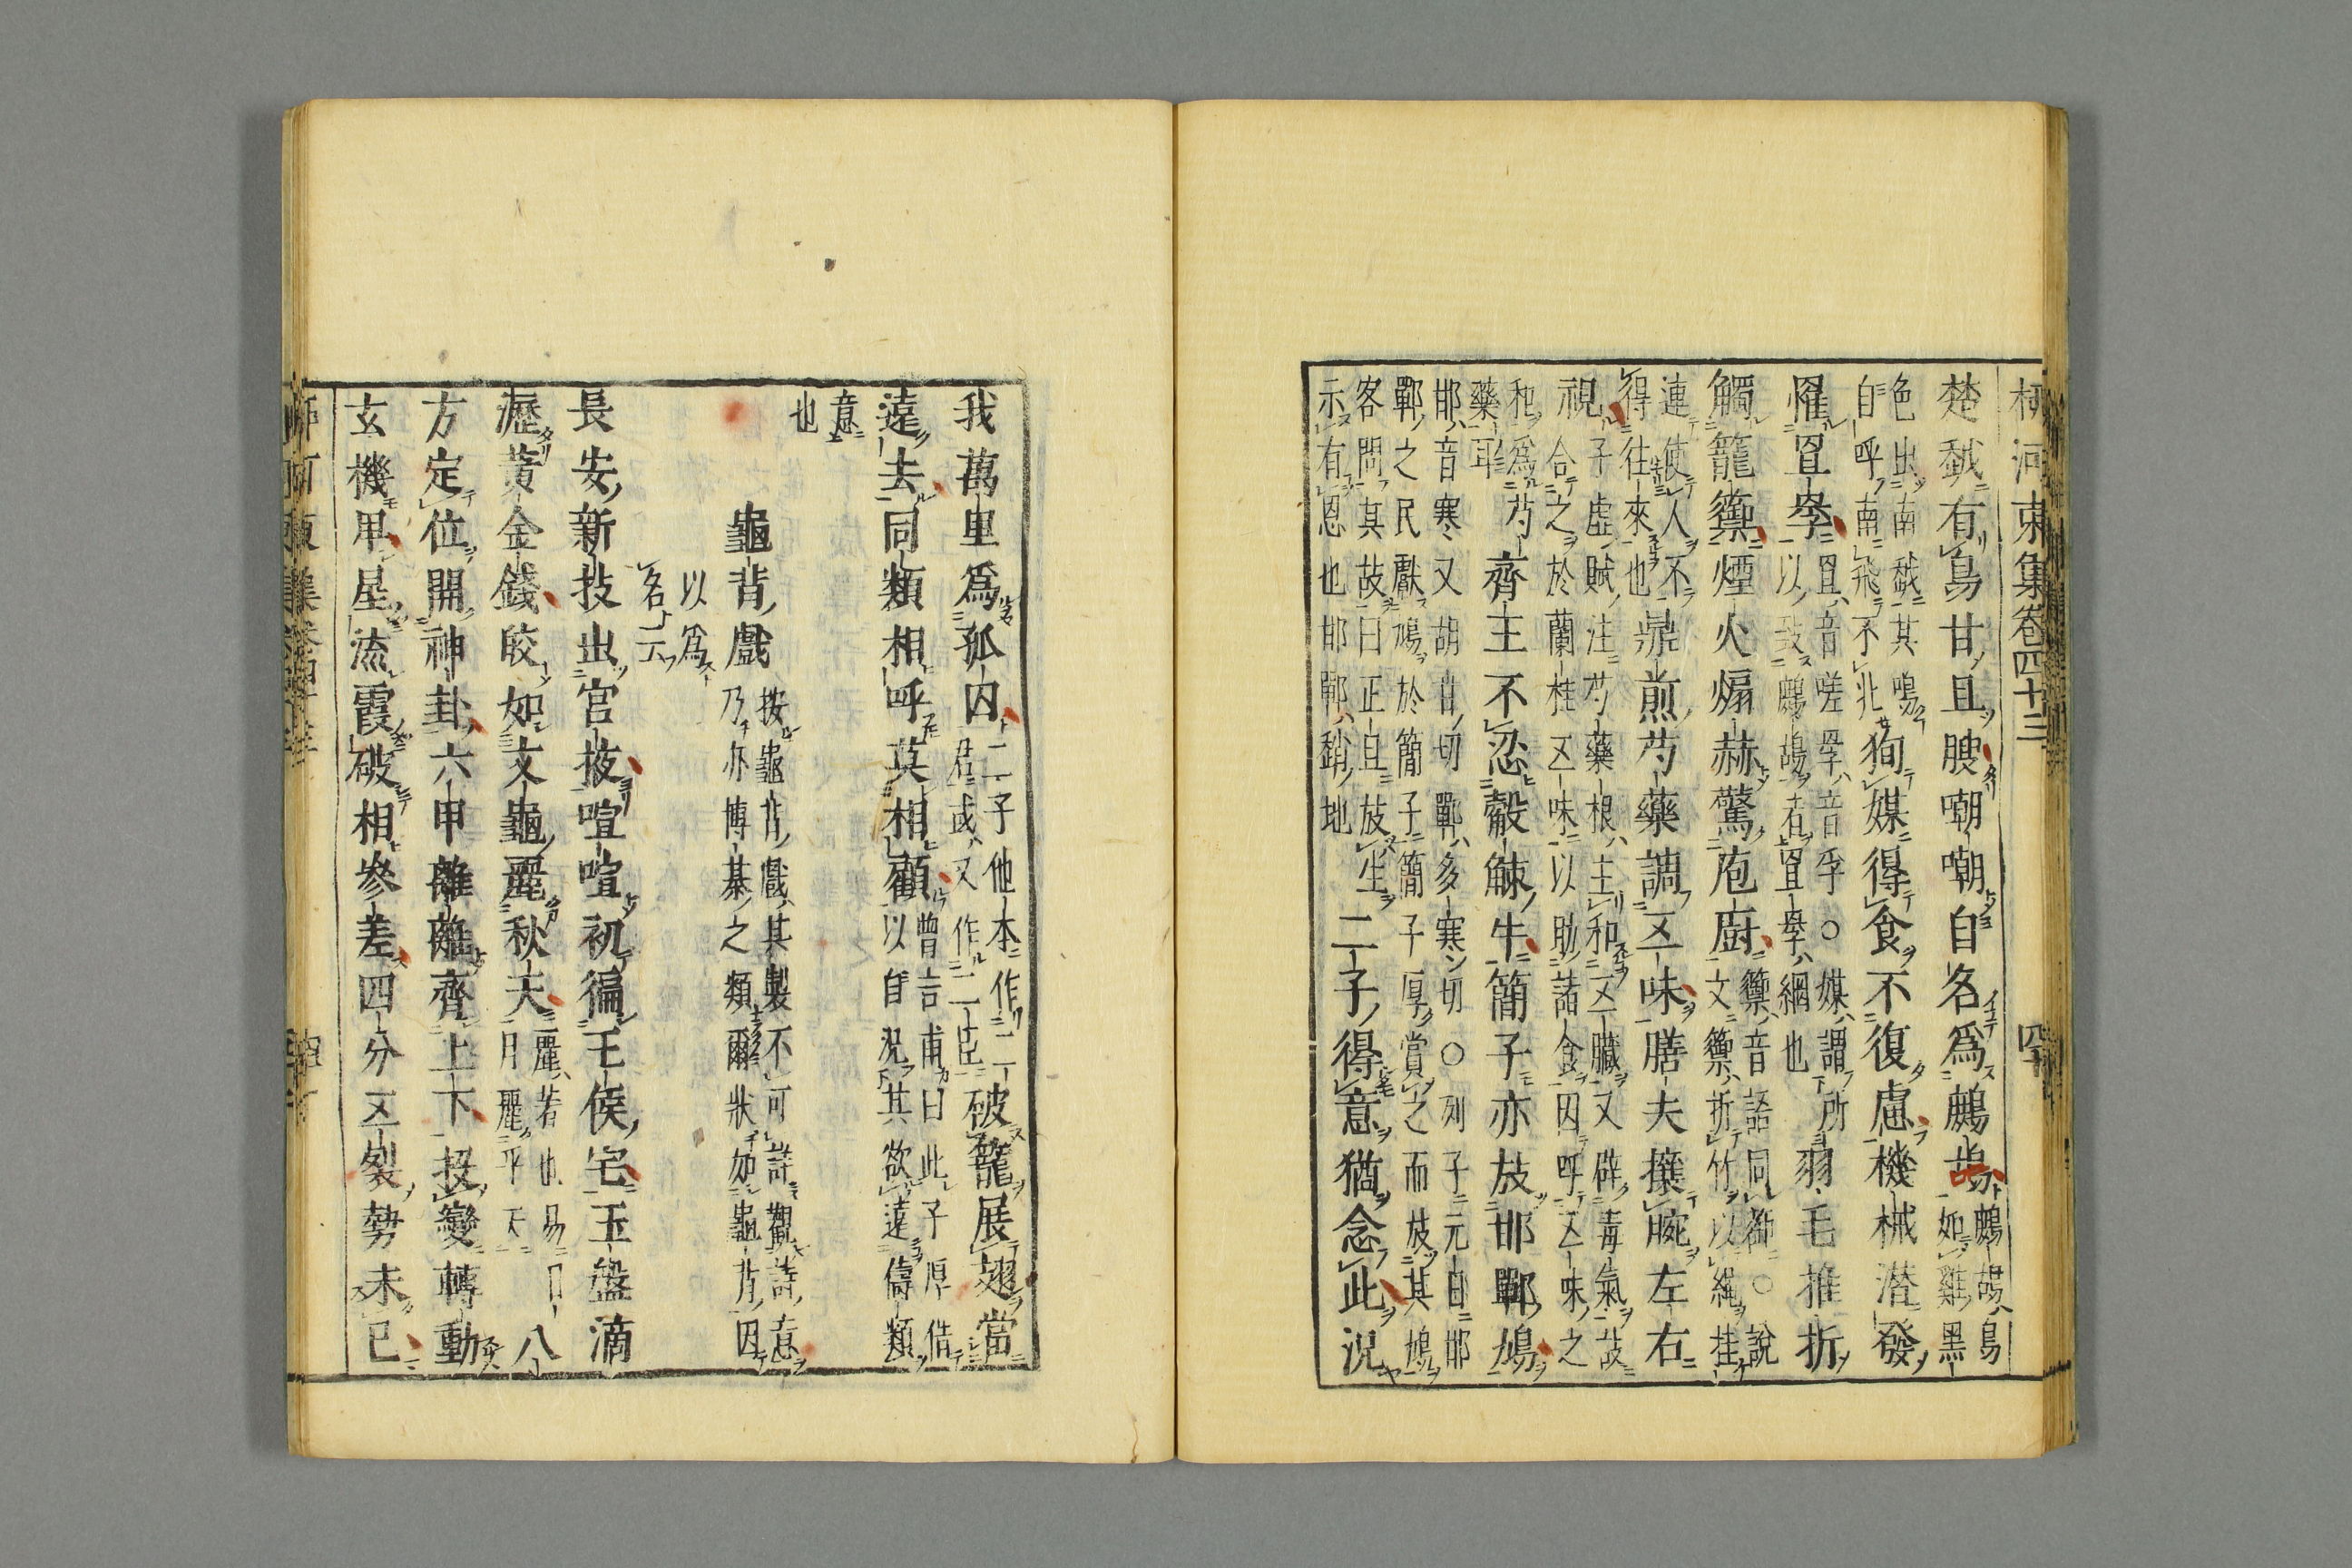 柳河東集卷四十三 四十
楚越有鳥甘且腴嘲嘲自名爲鷓鴣鷓鴣鳥如雞黑
色出南越其鳴自呼南飛不北徇媒得食不復慮機械潜發
罹罝罦罝音嗟罦音孚○媒謂所以致鷓鴣者罝罦網也羽毛摧折
觸籠籞煙火煽赫驚庖廚籞音語同籞○說文籞折竹以繩挂
連使人不得往來也鼎前芍藥調五味膳夫攘腕左右
視子虛賦注芍藥根主和五臟又辟毒氣故合之於蘭桂五味以助諸食因呼五味之
和爲芍藥耳齊王不忍觳觫牛簡子亦放邯鄲鳩
邯音寒又胡甘切鄲多寒切○列子元日邯鄲之民獻鳩於簡子簡子厚賞之而放其鳩
客問其故曰正旦放生示有恩也邯鄲趙地二子得意猶念此況
我萬里爲孤囚二子他本作二君或又作二臣破籠展翅當
遠去同類相呼莫相顧曾吉甫曰此子厚借以自況其欲遠儔類
意也
龜背戲按龜背戲其製不可詳觀詩意乃亦博棊之類爾狀如龜背因
以爲名云
長安新技出宮掖喧喧初徧王侯宅玉盤滴
瀝黃金錢皎如文龜麗秋天麗著也易日月麗乎天八
方定位開神卦六甲離離齊上下投變轉動
玄機卑星流霞破相參差四分五裂勢未已